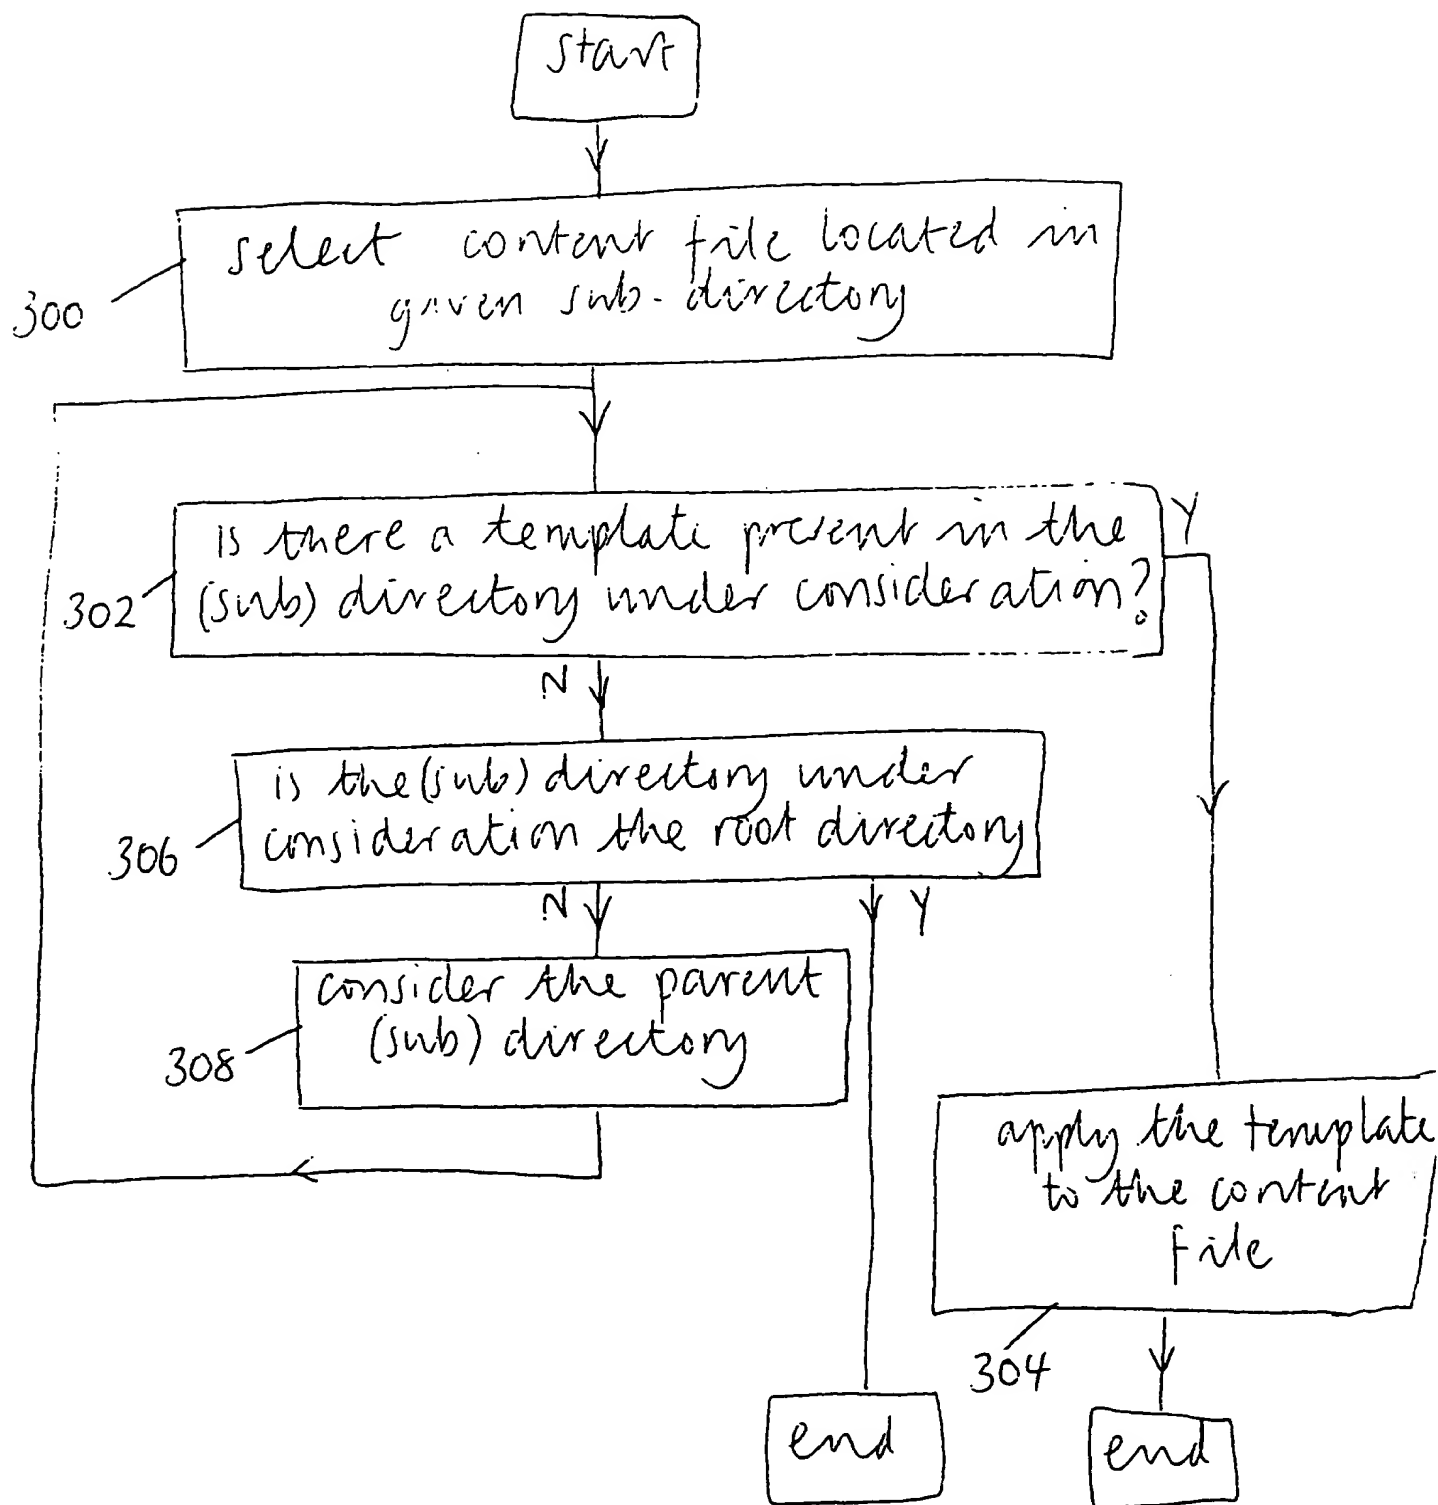 start
select content file located in
given sub-directory
300
is there a template present in the
(sub) directory under consideration?
302
Y
N
is the (sub) directory under
consideration the root directory
306
N
Y
consider the parent
(sub) directory
308
apply the template
to the content
file
304
end
end